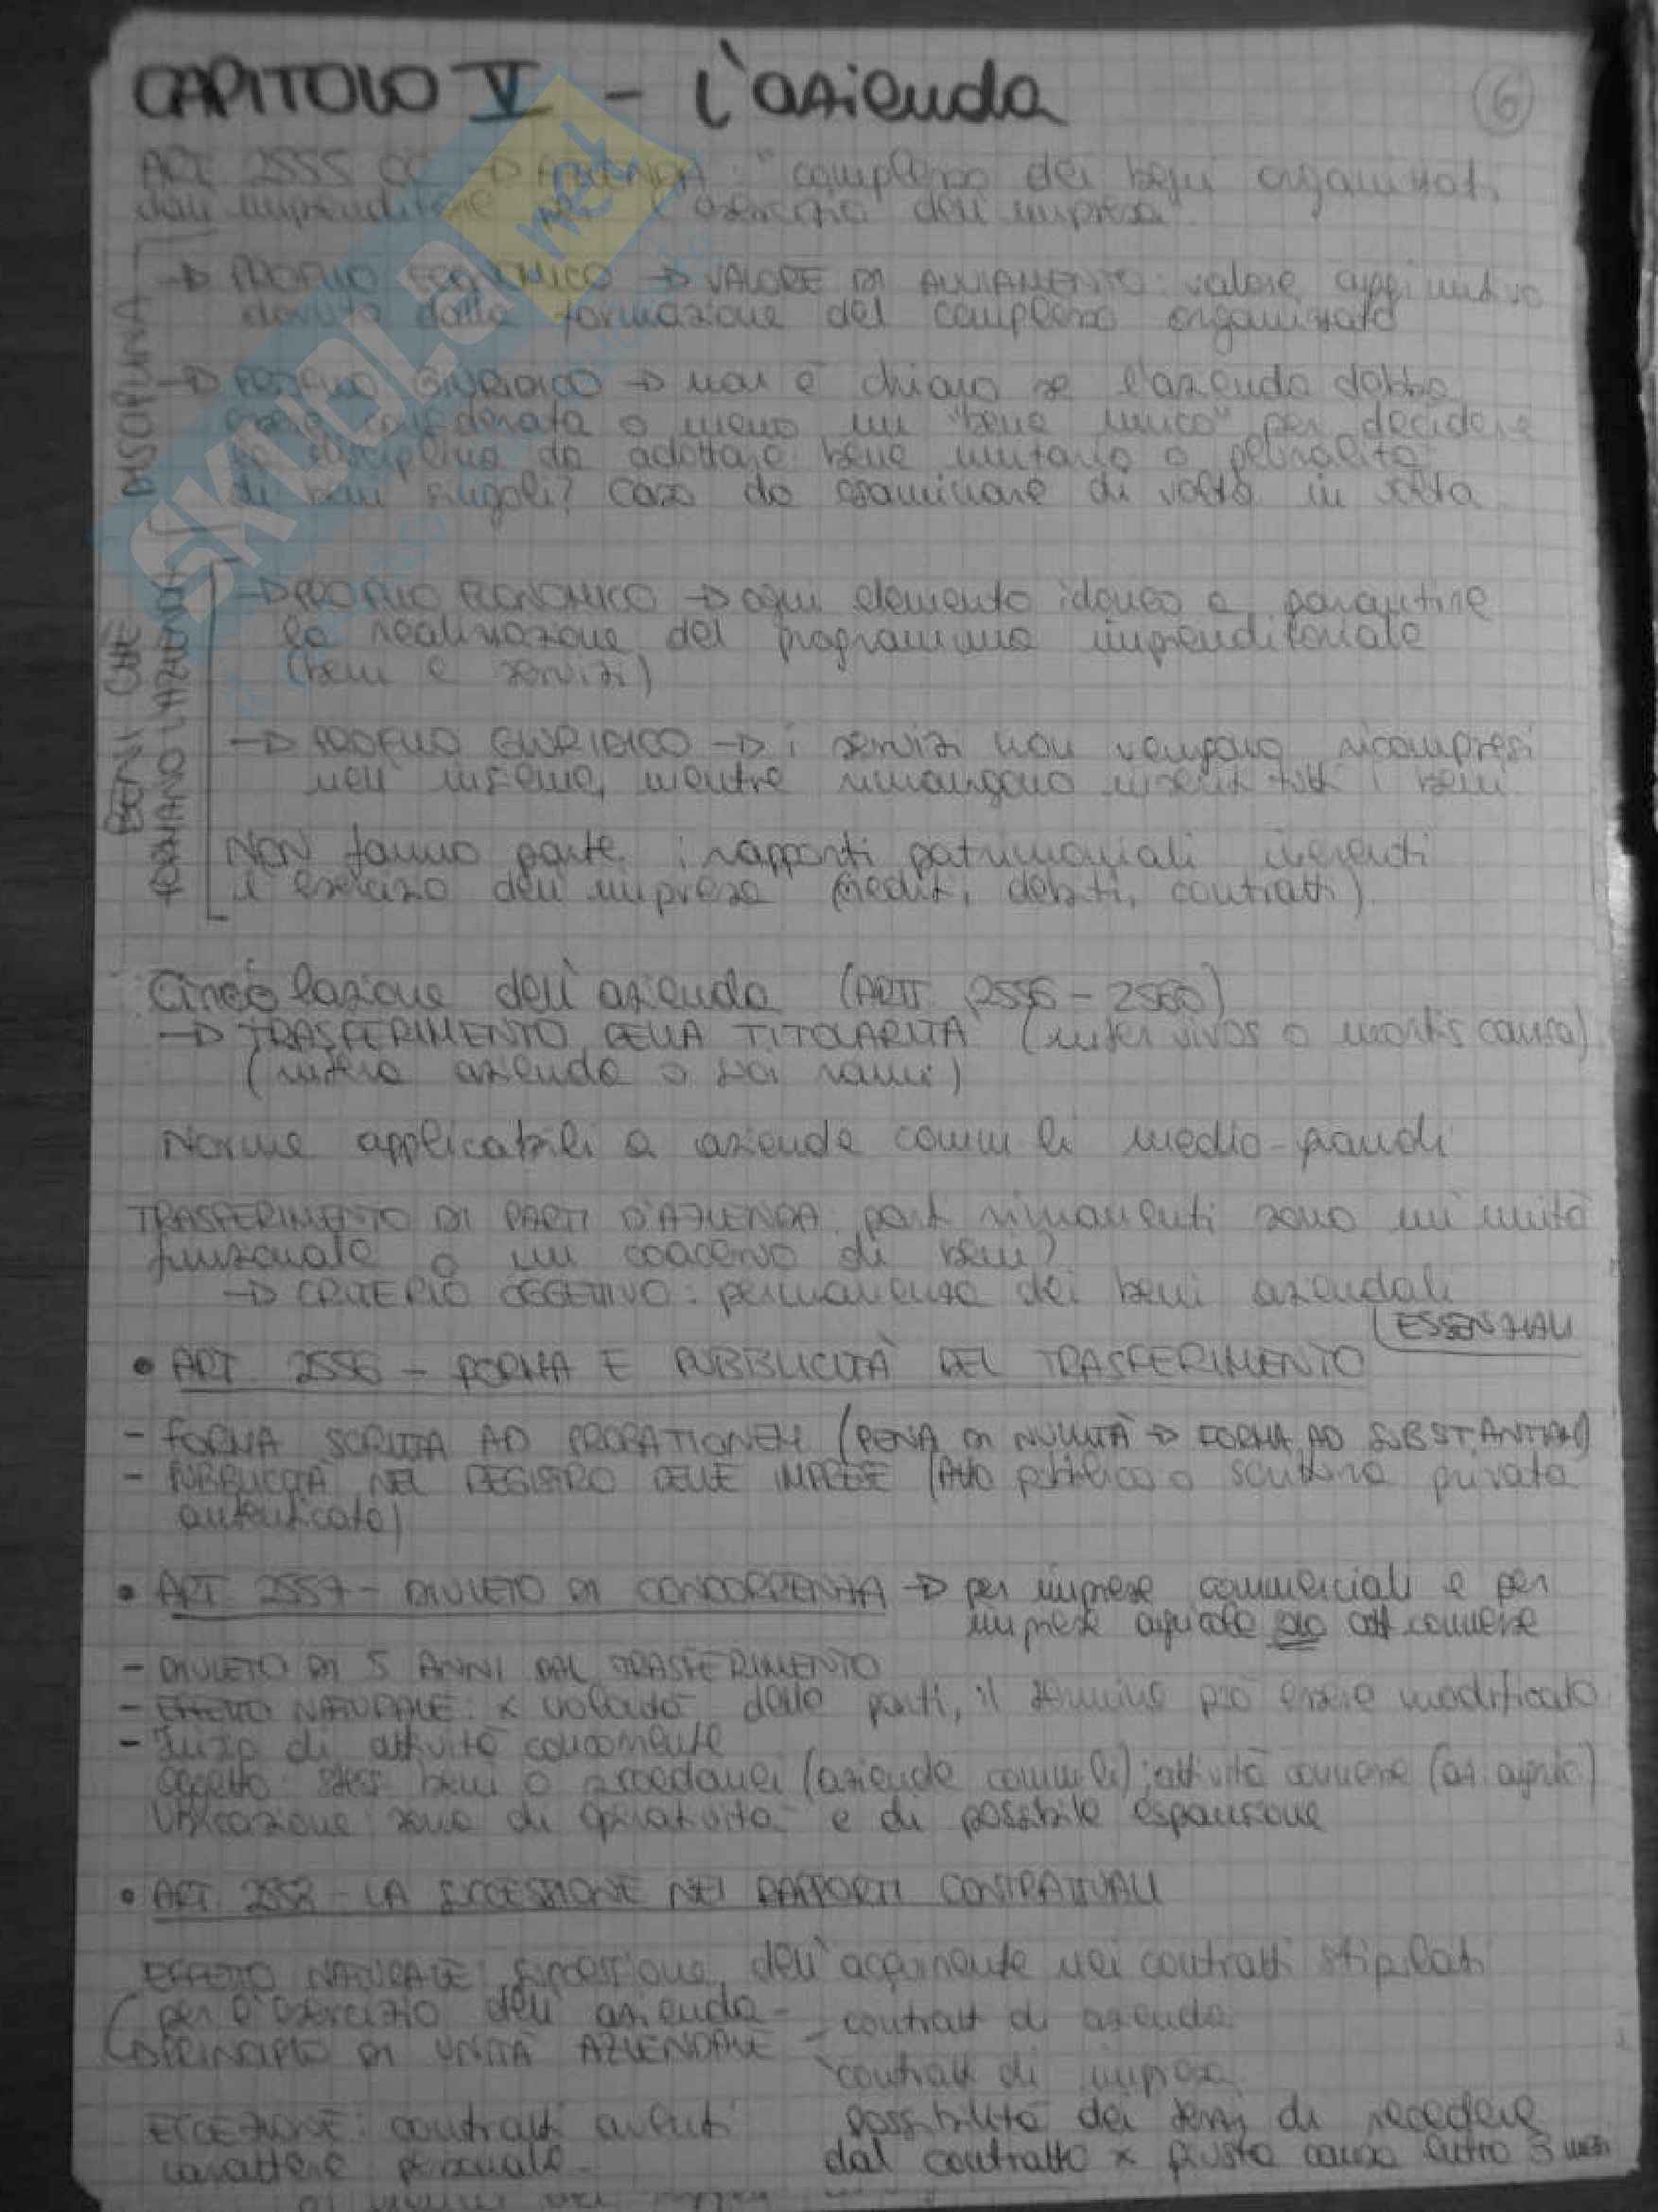 CAPITOLO V - L'azienda
6
ART. 2555 CC → AZIENDA: "complesso dei beni organizzati
dall'imprenditore per l'esercizio dell'impresa"
DISCIPLINA
→ PROFILO ECONOMICO → VALORE DI AVVIAMENTO: valore aggiuntivo
dovuto dalla formazione del complesso organizzato
→ PROFILO GIURIDICO → non è chiaro se l'azienda debba
essere considerata o meno un "bene unico" per decidere
la disciplina da adottare bene unitario o pluralità
di beni singoli? Caso da esaminare di volta in volta
BENI CHE
FORMANO L'AZIENDA
→ PROFILO ECONOMICO → ogni elemento idoneo a garantire
la realizzazione del programma imprenditoriale
(beni e servizi)
→ PROFILO GIURIDICO → i servizi non vengono ricompresi
nell'insieme, mentre rimangono inseriti tutti i beni
NON fanno parte i rapporti patrimoniali inerenti
l'esercizio dell'impresa (crediti, debiti, contratti)
Circolazione dell'azienda (ARTT. 2556 - 2560)
→ TRASFERIMENTO DELLA TITOLARITÀ (inter vivos o mortis causa)
(intera azienda o suoi rami)
Norme applicabili a aziende comm.li medio-grandi
TRASFERIMENTO DI PARTI D'AZIENDA: parti rimanenti sono un'unità
funzionale o un coacervo di beni?
→ CRITERIO OGGETTIVO: permanenza dei beni aziendali
ESSENZIALI
• ART. 2556 - FORMA E PUBBLICITÀ DEL TRASFERIMENTO
- FORMA SCRITTA AD PROBATIONEM (PENA DI NULLITÀ → FORMA AD SUBSTANTIAM)
- PUBBLICITÀ NEL REGISTRO DELLE IMPRESE (Atto pubblico o scrittura privata
autenticata)
• ART. 2557 - DIVIETO DI CONCORRENZA → per imprese commerciali e per
imprese agricole solo att. connesse
- DIVIETO DI 5 ANNI DAL TRASFERIMENTO
- EFFETTO NATURALE: x volontà delle parti, il termine può essere modificato
- Inizio di attività concorrente
oggetto: stessi beni o succedanei (aziende comm.li); attività connesse (az. agric.)
Ubicazione: zona di operatività e di possibile espansione
• ART. 2558 - LA SUCCESSIONE NEI RAPPORTI CONTRATTUALI
EFFETTO NATURALE: successione dell'acquirente nei contratti stipulati
per l'esercizio dell'azienda - contratti di azienda
→ PRINCIPIO DI UNITÀ AZIENDALE - contratti di impresa
ECCEZIONE: contratti aventi
carattere personale
possibilità dei terzi di recedere
dal contratto x giusta causa entro 3 mesi
SKUOLA.net